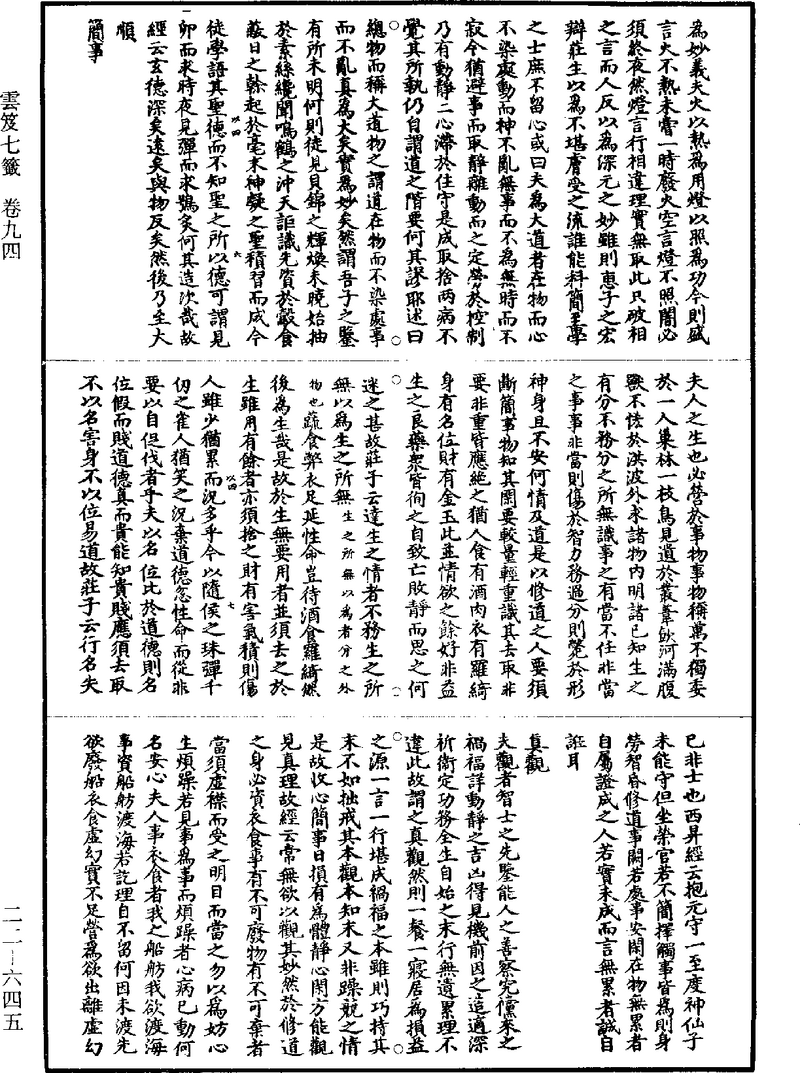 雲笈七籤 卷九四
二二—六四五
為妙義夫火以熱為用燈以照為功今則盛
言火不熱未嘗一時廢火空言燈不照闇必
須終夜然燈言行相違理實無取此只破相
之言而人反以為深元之妙雖則惠子之宏
辯莊生以為不堪膚受之流誰能科簡至學
之士庶不留心或曰夫為大道者在物而心
不染處動而神不亂無事而不為無時而不
寂今猶避事而取靜離動而之定勞於控制
乃有動靜二心滯於住守是成取捨兩病不
覺其所執仍自謂道之階要何其謬耶述曰
總物而稱大道物之謂道在物而不染處事
而不亂真為大矣實為妙矣然謂吾子之鑒
有所未明何則徒見貝錦之輝煥未曉始抽
於素絲纔聞鳴鶴之沖天詎識先資於鷇食
蔽日之榦起於毫末神凝之聖積習而成今
徒學語其聖德而不知聖之所以德可謂見
卵而求時夜見彈而求鴞炙何其造次哉故
經云玄德深矣遠矣與物反矣然後乃至大
順
簡事
夫人之生也必營於事物事物稱萬不獨委
於一人巢林一枝鳥見遺於叢葦飲河滿腹
獸不恡於洪波外求諸物內明諸已知生之
有分不務分之所無識事之有當不任非當
之事事非當則傷於智力務過分則斃於形
神身且不安何情及道是以修道之人要須
斷簡事物知其閑要較量輕重識其去取非
要非重皆應絕之猶人食有酒肉衣有羅綺
身有名位財有金玉此並情欲之餘好非益
生之良藥衆皆徇之自致亡敗靜而思之何
迷之甚故莊子云達生之情者不務生之所
無以為生之所無生之所無以為者分之外
物也蔬食弊衣足延性命豈待酒食羅綺然
後為生哉是故於生無要用者並須去之於
生雖用有餘者亦須捨之財有害氣積則傷
人雖少猶累而況多乎今以隨侯之珠彈千
仞之雀人猶笑之況棄道德忽性命而從非
要以自促伐者乎夫以名位比於道德則名
位假而賤道德真而貴能知貴賤應須去取
不以名害身不以位易道故莊子云行名失
已非士也西昇經云抱元守一至度神仙子
未能守但坐榮官若不簡擇觸事皆為則身
勞智昏修道事闕若處事安閑在物無累者
自屬證成之人若實未成而言無累者誠自
誑耳
真觀
夫觀者智士之先鑒能人之善察究儻來之
禍福詳動靜之吉凶得見機前因之造適深
祈衛定功務全生自始之末行無遺累理不
違此故謂之真觀然則一餐一寢居為損益
之源一言一行堪成禍福之本雖則巧持其
末不如拙戒其本觀本知末又非躁競之情
是故收心簡事日損有為體靜心閑方能觀
見真理故經云常無欲以觀其妙然於修道
之身必資衣食事有不可廢物有不可棄者
當須虛襟而受之明目而當之勿以為妨心
生煩躁若見事為事而煩躁者心病已動何
名安心夫人事衣食者我之船舫我欲渡海
事資船舫渡海若訖理自不留何因未渡先
欲廢船衣食虛幻實不足營為欲出離虛幻